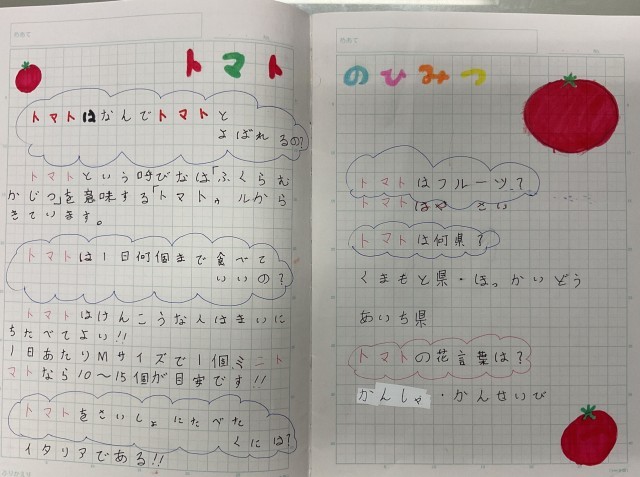 トマト
トマトはなんでトマトと
よばれるの?
トマトという呼びなは「ふくらむ
かじつ」を意味する「トマトゥルから
きています。
トマトは1日何個まで食べて
いいの?
トマトはけんこうな人はまいに
ちたべてよい!!
1日あたりMサイズで1個ミニト
マトなら10〜15個が目安です!!
トマトをさいしょにたべた
くには?
イタリアである!!
のひみつ
トマトはフルーツ?
トマトはやさい
トマトは何県?
くまもと県・ほっかいどう
あいち県
トマトの花言葉は?
かんしゃ・かんせいび